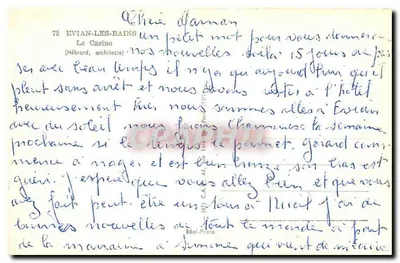 Chère Maman
73 EVIAN-LES-BAINS
Le Casino
(Hébrard, architecte)
un petit mot pour vous donner
nos nouvelles voilà 15 jours de pas
sés avec beau temps il n'y a qu'aujourd'hui qu'il
pleut sans arrêt et nous devons rester à l'hôtel
heureusement hier nous sommes allés à Evian
avec du soleil nous ferons Chamonix la semaine
prochaine si le temps le permet. Gérard com
mence à nager et est bien bronzé son bras est
guéri. j'espère que vous allez bien et que vous
avez fait peut être un tour à j'ai de
bonnes nouvelles de tout le monde à part
de la marraine à qui vient de
Réal-Photo